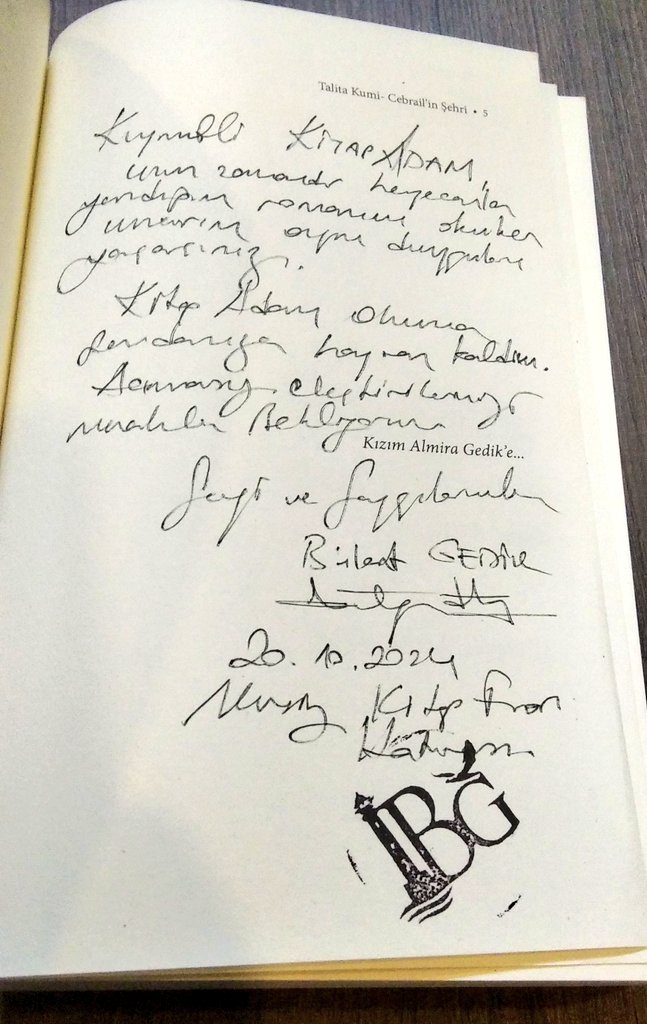 Talita Kumi- Cebrail'in Şehri • 5
Kıymetli KİTAP ADAM,
uzun zamandır heyecanla
yazdığım romanımı okurken
umarım aynı duyguları
yaşarsınız.
Kitap Adam okuma
hayran kaldım.
eleştirilerinizi
merakla Bekliyorum
Kızım Almira Gedik'e...
Sevgi ve Saygılarımla
Bülent GEDİK
20.10.2024
Kitap Fuarı
Hatırası
BG